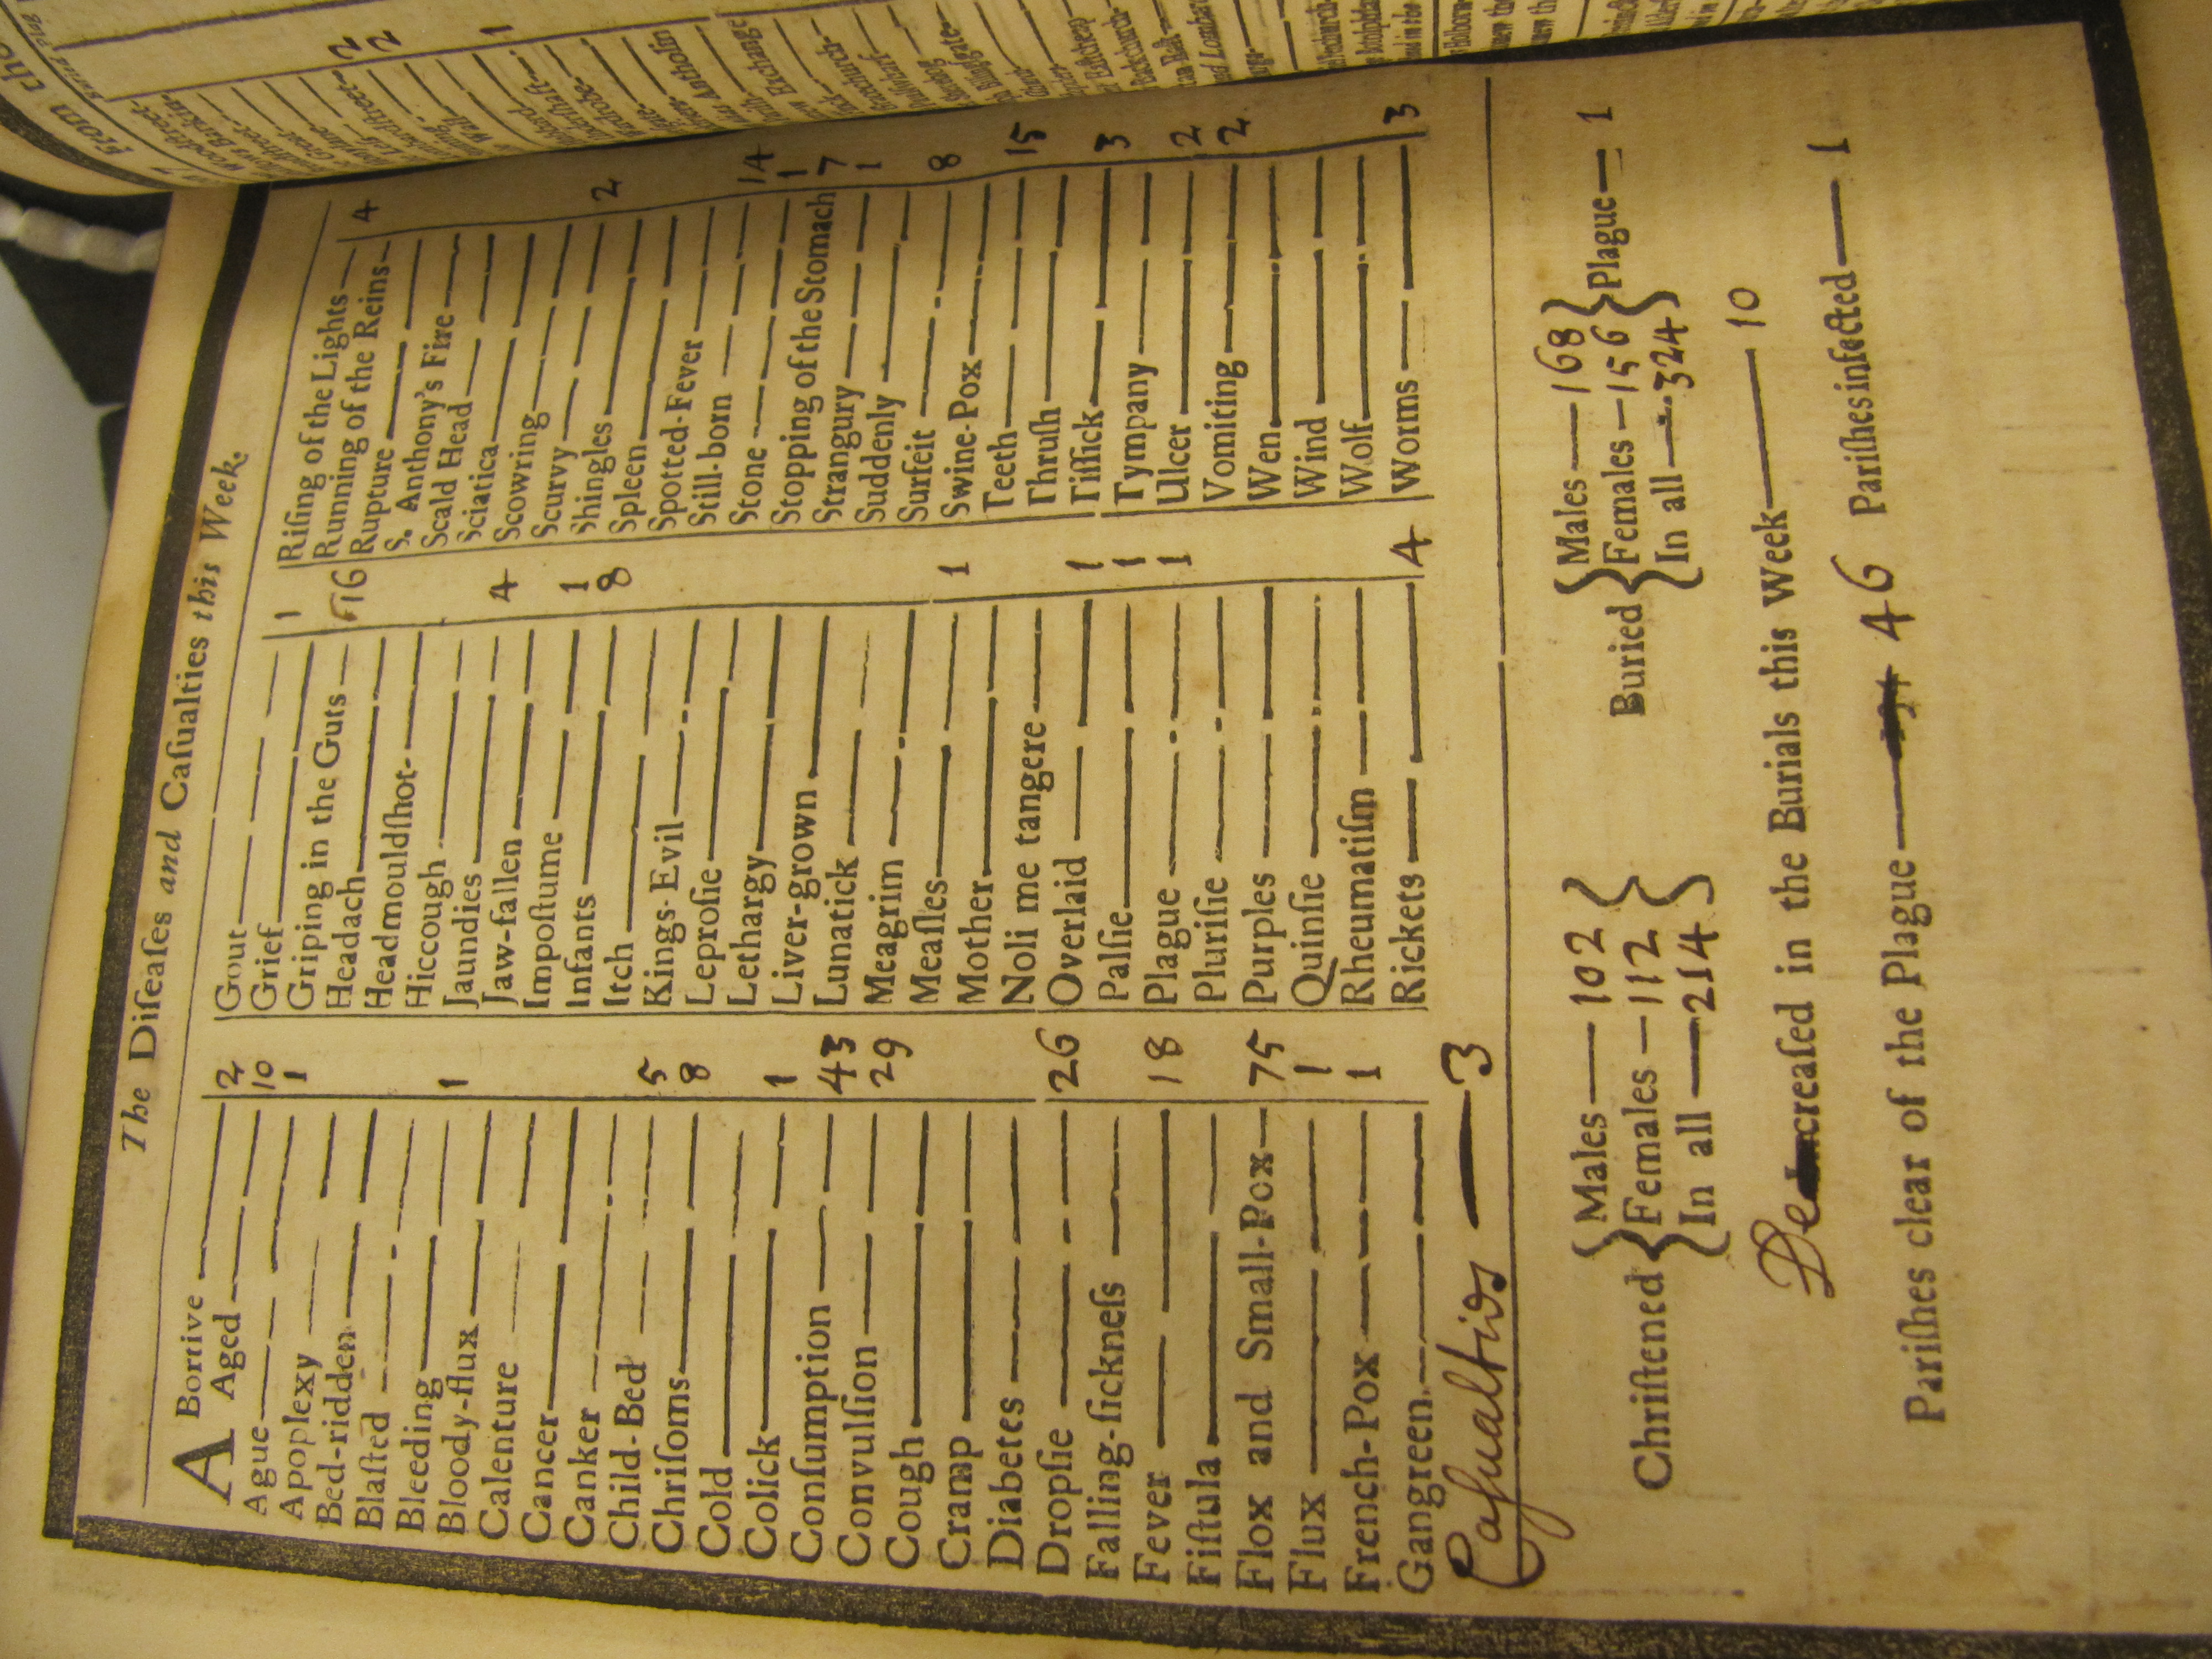 The Diſeaſes and Caſualties this Week.
ABortive 2
Aged 10
Ague 1
Apoplexy
Bed-ridden
Blaſted
Bleeding 1
Bloody-flux
Calenture
Cancer
Canker
Child-Bed 5
Chriſoms 8
Cold
Colick 1
Conſumption 43
Convulſion 29
Cough
Cramp
Diabetes
Dropſie 26
Falling-ſickneſs
Fever 18
Fiſtula
Flox and Small-Pox 75
Flux 1
French-Pox 1
Gangreen
Caſualtids — 3
Gout 1
Grief
Griping in the Guts 16
Headach
Headmouldſhot
Hiccough
Jaundies 4
Jaw-fallen
Impoſtume 1
Infants 8
Itch
Kings-Evil
Leproſie
Lethargy
Liver-grown
Lunatick
Meagrim
Meaſles 1
Mother
Noli me tangere
Overlaid 1
Palſie 1
Plague 1
Pluriſie
Purples
Quinſie
Rheumatiſm
Rickets 4
Riſing of the Lights 4
Running of the Reins
Rupture
S. Anthony's Fire
Scald Head
Sciatica
Scowring
Scurvy 2
Shingles
Spleen
Spotted-Fever
Still-born 14
Stone 1
Stopping of the Stomach 7
Strangury 1
Suddenly
Surfeit 8
Swine-Pox
Teeth 15
Thruſh
Tiſſick 3
Tympany
Ulcer 2
Vomiting 2
Wen
Wind
Wolf
Worms 3
Chriſtened { Males — 102
Females — 112
In all — 214 }
Buried { Males — 168
Females — 156
In all — 324 } Plague — 1
Decreaſed in the Burials this Week — 10
Pariſhes clear of the Plague — 46 Pariſhes infected — 1
From the